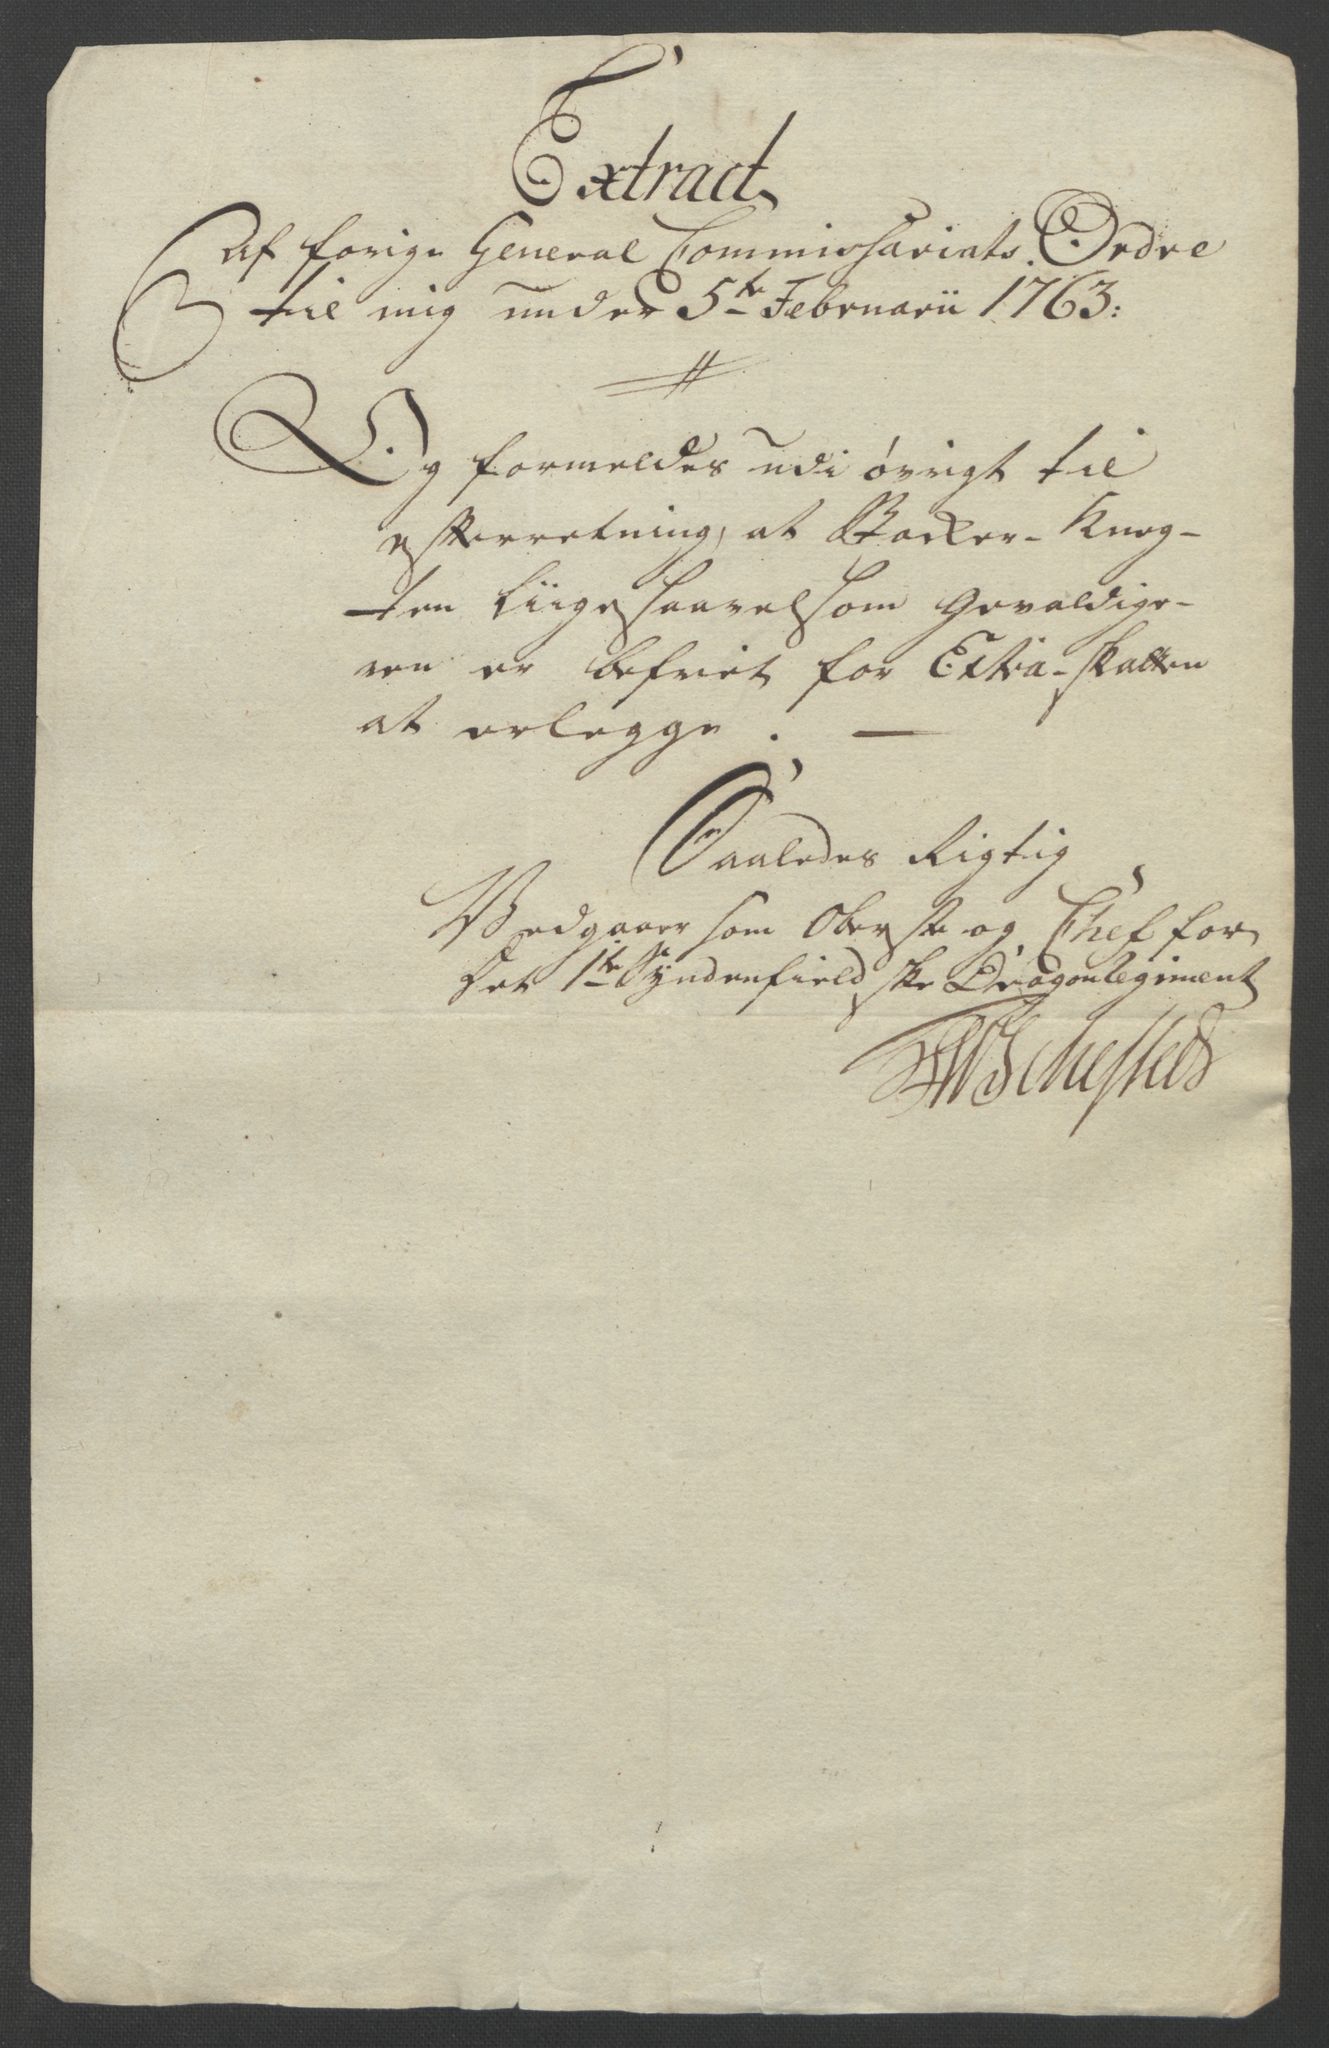 Extract
Af forige General Commissariats Ordre
til mig under 5te Februarii 1763:
Og formeldes udi øvrigt til
efterretning, at Stocker-Kneg-
ten liigesaavelsom Gevaldige-
ren er befriet for Extra-Skatten
at erlegge. —
Saaledes Rigtig
Vedgaaer som Oberste og Chef for
Det 1te Syndenfieldske Dragonregiment